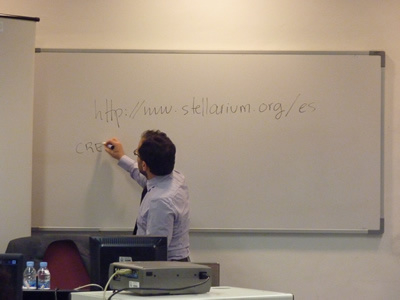 http://www.stellarium.org/es
CRE